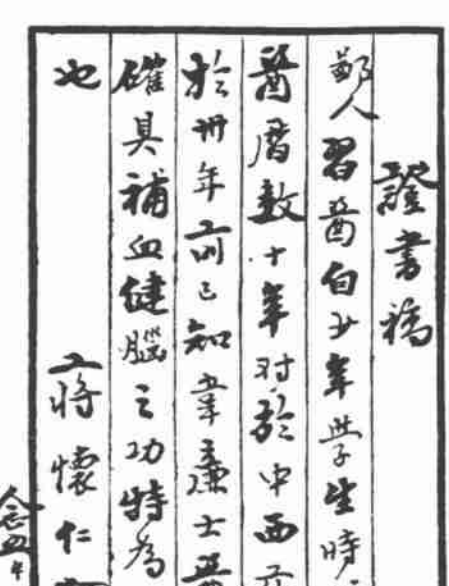 證書稿
鄙人習醫自少年學生時
醫曆數十年对於中西
於卅年前已知韋廉士醫
確具補血健腦之功特為
也 蔣懷仁